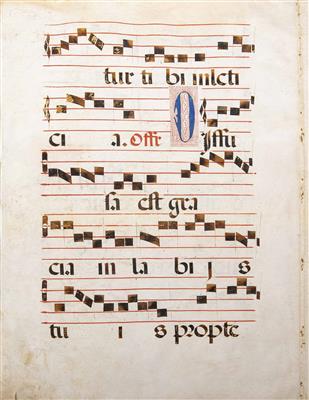 tur ti bi inlcti
ci a. Offr Diffu
sa est gra
cia in la bi j s
tu i s propte